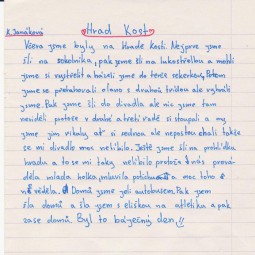 K. Janáková
Hrad Kost
Včera jsme byly na hradě Kosti. Nejprve jsme
šli na sokolníka, pak jsme šli na lukostřelbu a mohli
jsme si vystřelit a házeli jsme do terče sekerkou. Potom
jsme se přetahovali o lano s druhou třídou ale vyhráli
jsme. Pak jsme šli do divadla ale nic jsme tam
neviděli protože v druhé a třetí řadě si stoupali a my
jsme jim říkaly ať si sednou ale neposlouchali takže
se mi divadlo moc nelíbilo. Ještě jsme šli na prohlídku
hradu a to se mi taky nelíbilo protože nás prová-
děla mladá holka, mluvila potichu a moc toho
nevěděla. Domů jsme jeli autobusem. Pak jsem
šla domů a šla jsem s eliškou na atletiku a pak
zase domů. Byl to báječný den!!